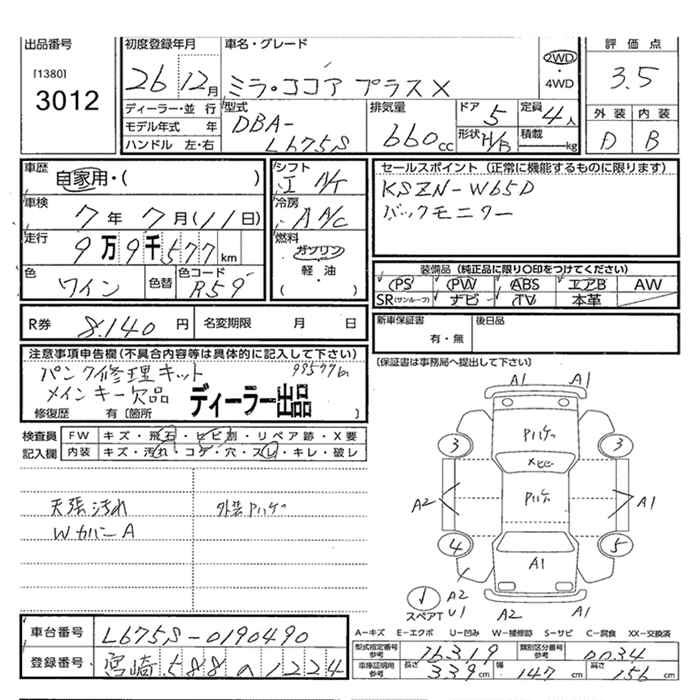 出品番号
[1380]
3012
初度登録年月
26 12月
車名・グレード
ミラ・ココア プラスX
2WD
・
4WD
評価点
3.5
外装 内装
D B
ディーラー・並行
モデル年式 年
ハンドル 左・右
型式
DBA-
L675S
排気量
660cc
ドア 5
形状 H/B
定員 4人
積載 kg
車歴
自家用・( )
車検
7年7月(11日)
走行
9万9千577km
色
ワイン
色替
色コード
R59
シフト
I AT
冷房
A A/C
燃料
ガソリン
軽・油
( )
セールスポイント (正常に機能するものに限ります)
KSZN-W65D
バックモニター
装備品 (純正品に限り○印をつけてください)
PS PW ABS エアB AW
SR(サンルーフ) ナビ TV 本革
R券 8,140円 名変期限 月 日
新車保証書
有・無
後日品
(保証書は事務局へ提出して下さい)
注意事項申告欄(不具合内容等は具体的に記入して下さい)
パンク修理キット 99577km
メインキー欠品 ディーラー出品
修復歴 有〔箇所 〕
検査員
記入欄
FW キズ・飛石・ヒビ割・リペア跡・X要
内装 キズ・汚れ・コゲ・穴・スレ・キレ・破レ
天張汚れ
Wカバー A
外装Pハゲ
A1 A1
Pハゲ
3 3
Xヒビ
A2 Pハゲ A1
4 5
A1
スペアT
A2
U1
A2 A1
A-キズ E-エクボ U-凹み W-補修跡 S-サビ C-腐食 XX-交換済
車台番号 L675S-0190490
登録番号 宮崎 588 の 1224
型式指定番号
参考
16319
類別区分番号
参考
0034
車庫証明用
参考
長さ 339cm 幅 147cm 高さ 156cm